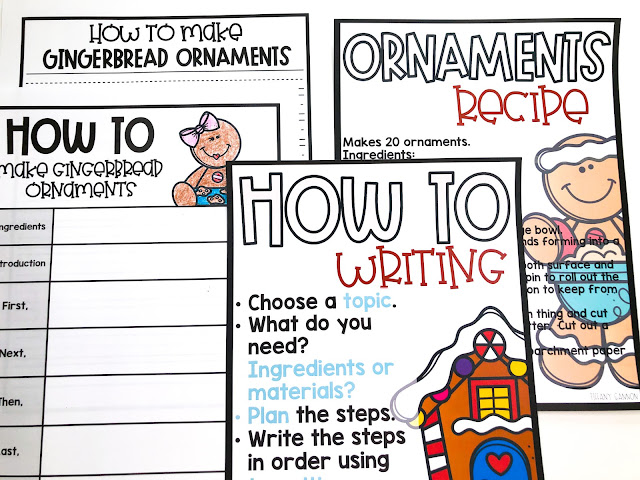 HOW TO make
GINGERBREAD ORNAMENTS
ORNAMENTS
RECIPE
Makes 20 ornaments.
Ingredients:
ge bowl.
nds forming into a
ooth surface and
pin to roll out the
on to keep from
n thing and cut
tter. Cut out a
parchment paper
TIFFANY GANNON
HOW TO
make GINGERBREAD
ORNAMENTS
ngredients
ntroduction
First,
Next,
Then,
Last,
HOW TO
WRITING
• Choose a topic.
• What do you
need?
Ingredients or
materials?
• Plan the steps.
• Write the steps
in order using